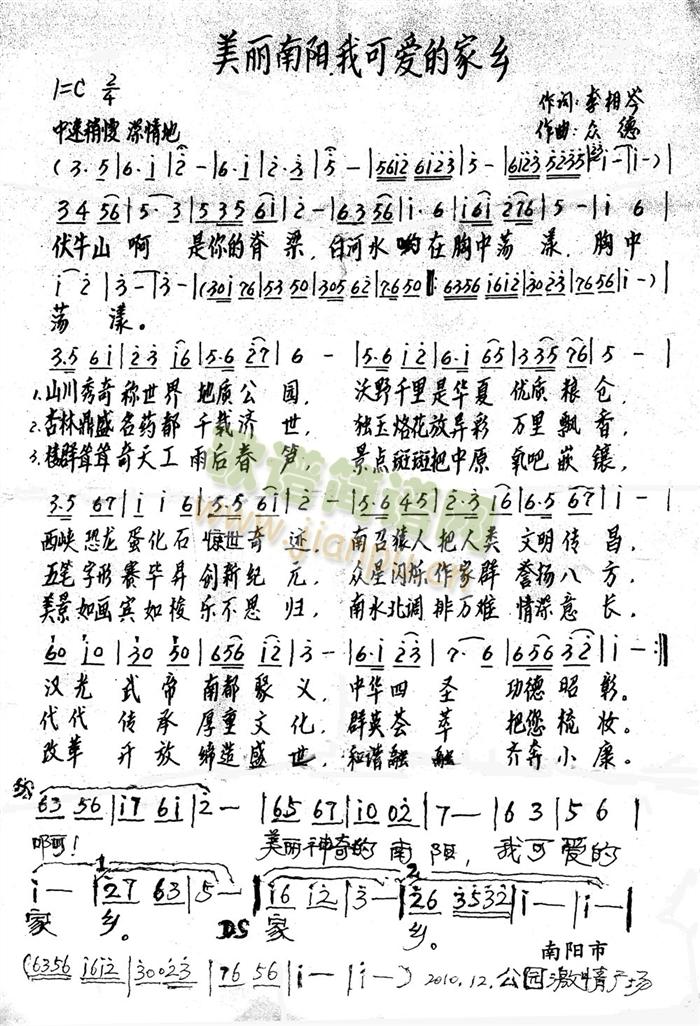 美丽南阳,我可爱的家乡
1=C 2/4
作词:李相岑
中速稍慢 深情地
作曲:众德
(3.5|6.i|2-|6.i|2.3|5-|5612 6123|5-|6123 5235|i-|i-)|
3 4 56|5.3|535 6i|2-|63 56|i.6|i6i 276|5-|i 6|
伏牛山 啊 是你的脊梁,白河水哟在胸中荡漾,胸中
i 2|3-|3-|(30i 76|53 50|305 62|76 50|:6356 i6i2|30 23|76 56|i-)|
荡漾。
3.5 6i|23 i6|5.6 27|6-|5.6 i2|6.i 65|335 76|5-|
1.山川秀奇称世界 地质公园,沃野千里是华夏 优质粮仓,
2.杏林鼎盛名药都 千载济世,独玉烙花放异彩 万里飘香,
3.楼群茸茸奇天工 雨后春笋,景点斑斑把中原 氧吧嵌镶,
3.5 67|i i 6|5.5 6i|2-|5.6 45|2.3 i6|6.5 67|i-|
西峡恐龙蛋化石 惊世奇迹,南召猿人把人类 文明传昌,
五笔字形赛毕昇 创新纪元,众星闪烁作家群 誉扬八方,
美景如画宾如梭 乐不思归,南水北调排万难 情深意长,
60 i0|30 50|656 i2|3-|6.i 23|7.6|656 32|i-:|
汉光武帝南都聚义,中华四圣 功德昭彰。
代代传承厚重文化,群英荟萃 把您梳妆。
改革开放缔造盛世,和谐融融 齐奔小康。
63 56|i7 6i|2-|65 67|i0 02|7-|6 3|5 6|
啊! 美丽神奇的南阳,我可爱的
i-|27 63|5-|i6 i2|3-|26 3532|i-|
家 乡。 D.S 家 乡。
南阳市
(6356 i6i2|30023|76 56|i-|i-) 2010.12.公园激情广场
歌谱简谱网
www.jianpu.cn